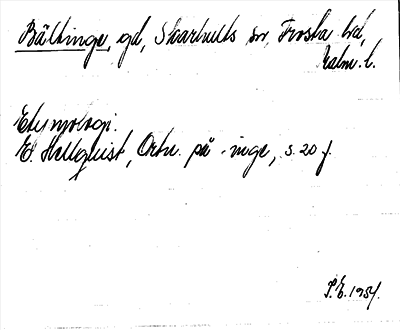 Bältinge, gd, Skarhults sn, Frosta hd,
Malm. l.
Etymologi.
E. Hellquist, Ortn. på -inge, s. 20 f.
S.E. 1954.